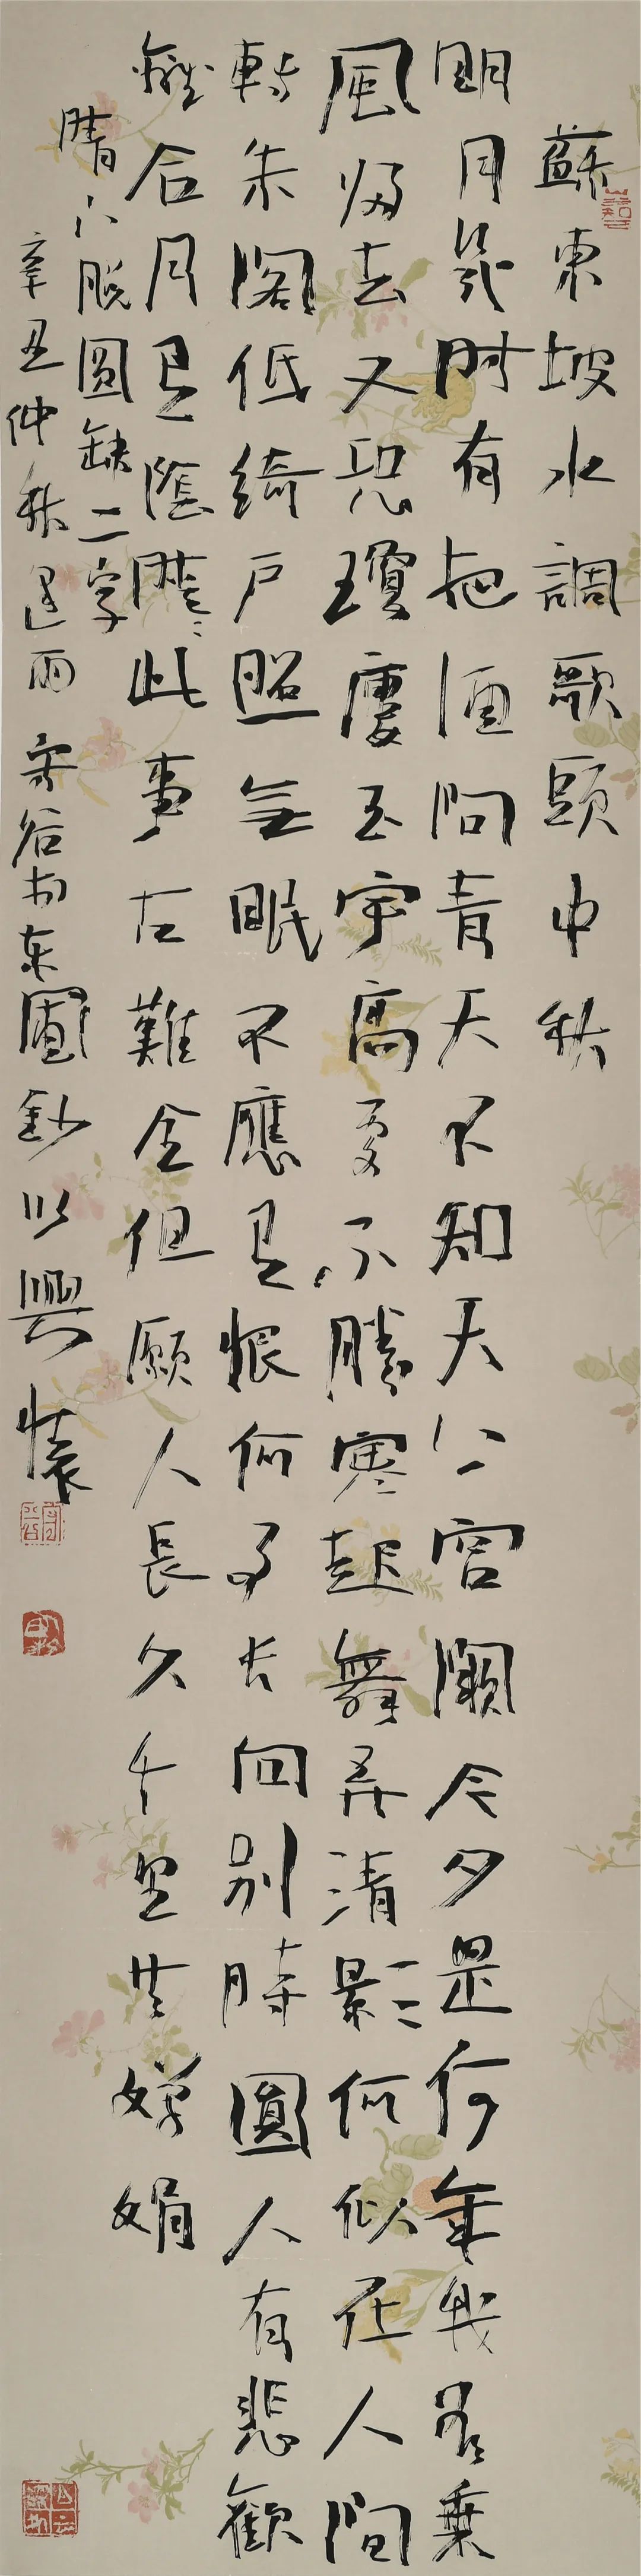 蘇東坡水調歌頭中秋
明月幾時有把酒問青天不知天上宮闕今夕是何年我欲乘
風歸去又恐瓊廔玉宇高處不勝寒起舞弄清影何似在人間
轉朱閣低綺戶照無眠不應有恨何事长向別時圓人有悲歡
離合月有陰晴此事古難全但願人長久千里共嬋娟
晴下脫圓缺二字
辛丑仲秋遇雨守谷於东圃鈔以興懷